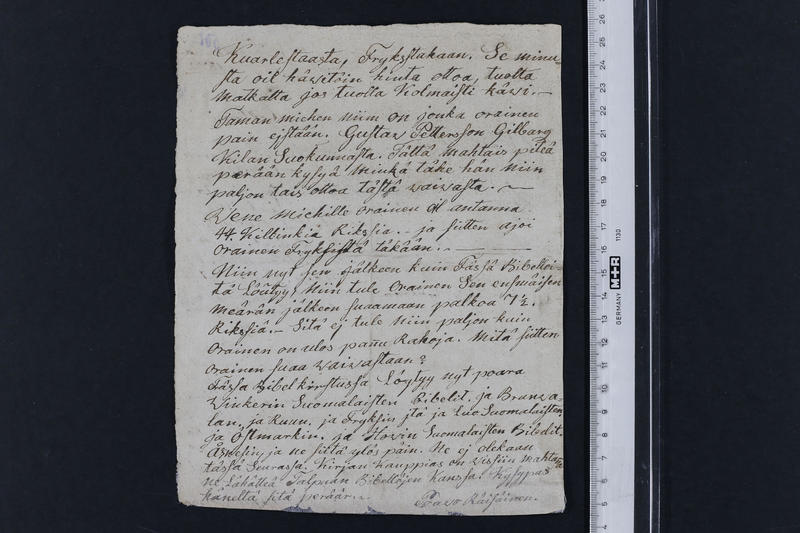 Kuarlestaasta, Frykstakaan. Se minu-
sta oil häwitöin hinta ottoa, tuolta
Matkalta jos tuolta Kolmaisti käwi.—
Taman miehen niim on jonka orainen
pain ejstään. Gustaw Pettersson Gilbarg
Kilan Suokunnasta. Tättä mahtais piteä
perään kysyä minkä täke hän niin
paljon tais ottoa tästä waiwasta. —
Wene Miehille orainen oil antanna
44. Killinkiä Riksia.. ja sitten ajoi
orainen Frykssistä täkään. —
Niin nyt sen jälkeen kuin Tässä Bibelloi-
tä Löütyy, Niin tule orainen Sen ensmäisen
meärän jälkeen saamaan palkoa 7½.
Riksiä.— Sitä ej tule Niin paljon kuin
orainen on ulos pannu Rahoja. Mitä sitten
orainen saa waiwastaan?
Tässä Bibelkirstussa Löytyy nyt poara
Winkerin Suomalaisten bibelit. ja Brunwa-
lan, ja Ruun, ja Fryksin jtä ja Suomalaisten
ja Östmarkin. ja Howin Suomalaisten Bibelit.
ja ne siitä ylös päin. Ne ej olekaan
tässä Seurassa. Kirjan kauppias on wissiin mahtan-
na Lähätteä Talpian Bibellöjen Kanssa. Kysypas
häneltä sitä perään.
Poawo Räisäinen.
GERMANY M+R 1130
26
25
24
23
22
21
20
19
18
17
16
15
14
13
12
11
10
9
8
7
6
5
4